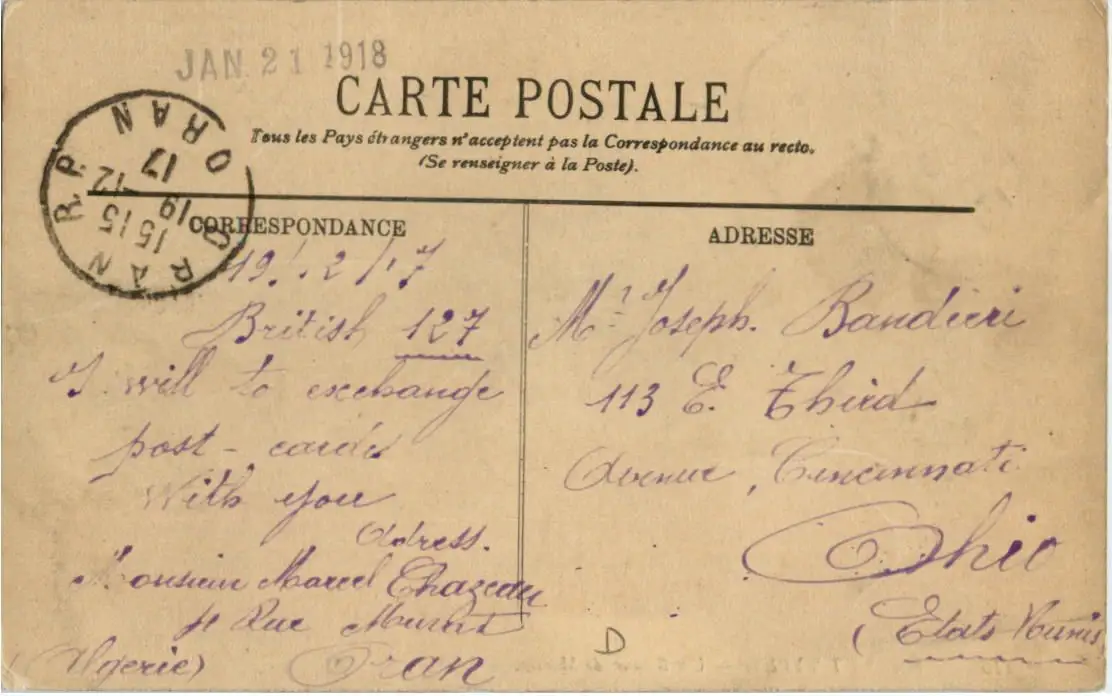 JAN 21 1918
CARTE POSTALE
Tous les Pays étrangers n'acceptent pas la Correspondance au recto.
(Se renseigner à la Poste).
ORAN
17
19 -12
15 15
ORAN R.P.
CORRESPONDANCE
19/12/17
British 127
I will to exchange
post-cards
With you
Adress.
Monsieur Marcel Chazeau
Rue
(Algerie) Oran
ADRESSE
Mr Joseph. Bandieri
113 E. Third
Avenue, Cincinnati
Ohio
(Etats-Younis
D